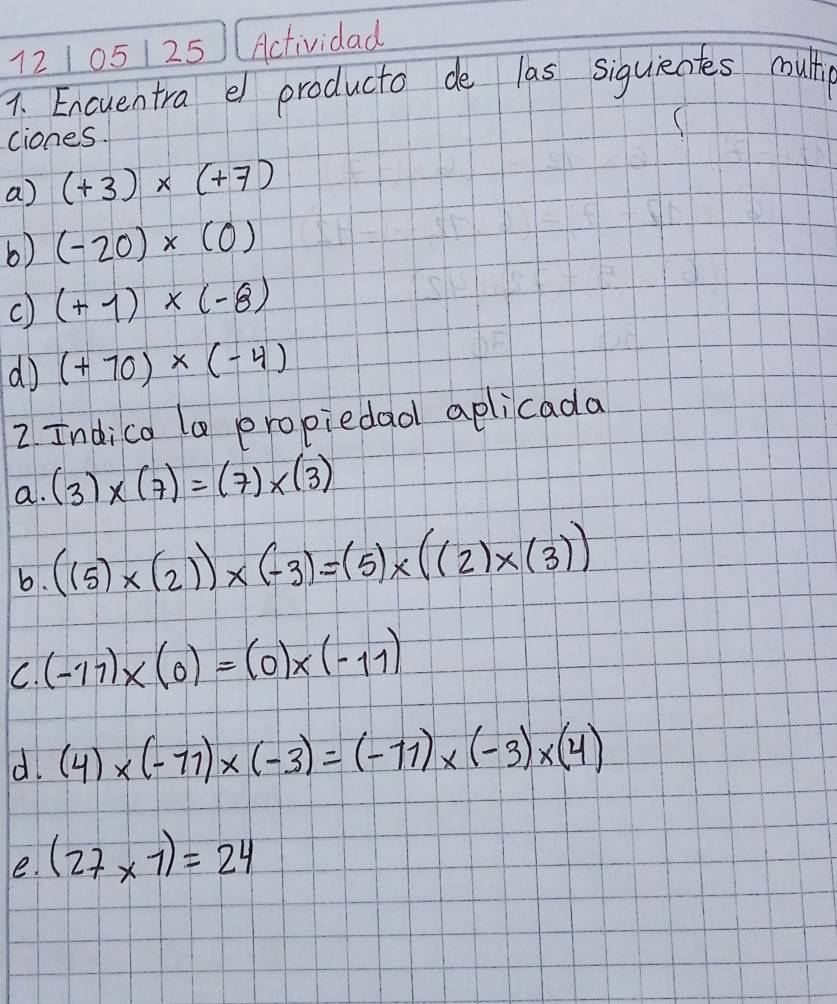 12 | 05 | 25 Actividad
1. Encuentra el producto de las siguientes multip
ciones.
a) (+3) × (+7)
b) (-20) × (0)
c) (+1) × (-8)
d) (+10) × (-4)
2. Indica la propiedad aplicada
a. (3) × (7) = (7) × (3)
b. ((5) × (2)) × (-3) = (5) × ((2) × (3))
c. (-11) × (0) = (0) × (-11)
d. (4) × (-11) × (-3) = (-11) × (-3) × (4)
e. (27 × 1) = 24